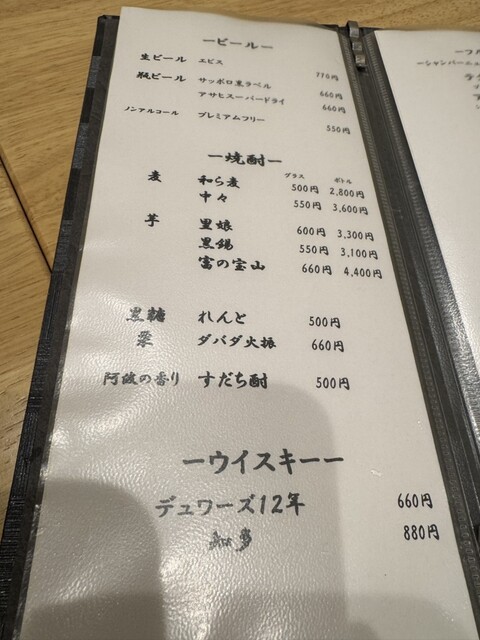 ービールー
生ビール エビス 770円
瓶ビール サッポロ黒ラベル 660円
アサヒスーパードライ 660円
ノンアルコール プレミアムフリー 550円
ー焼酎ー
グラス ボトル
麦 和ら麦 500円 2,800円
中々 550円 3,600円
芋 里娘 600円 3,300円
黒錫 550円 3,100円
富の宝山 660円 4,400円
黒糖 れんと 500円
栗 ダバダ火振 660円
阿波の香り すだち酎 500円
ーウイスキーー
デュワーズ12年 660円
知多 880円
ーシャンパーニュ